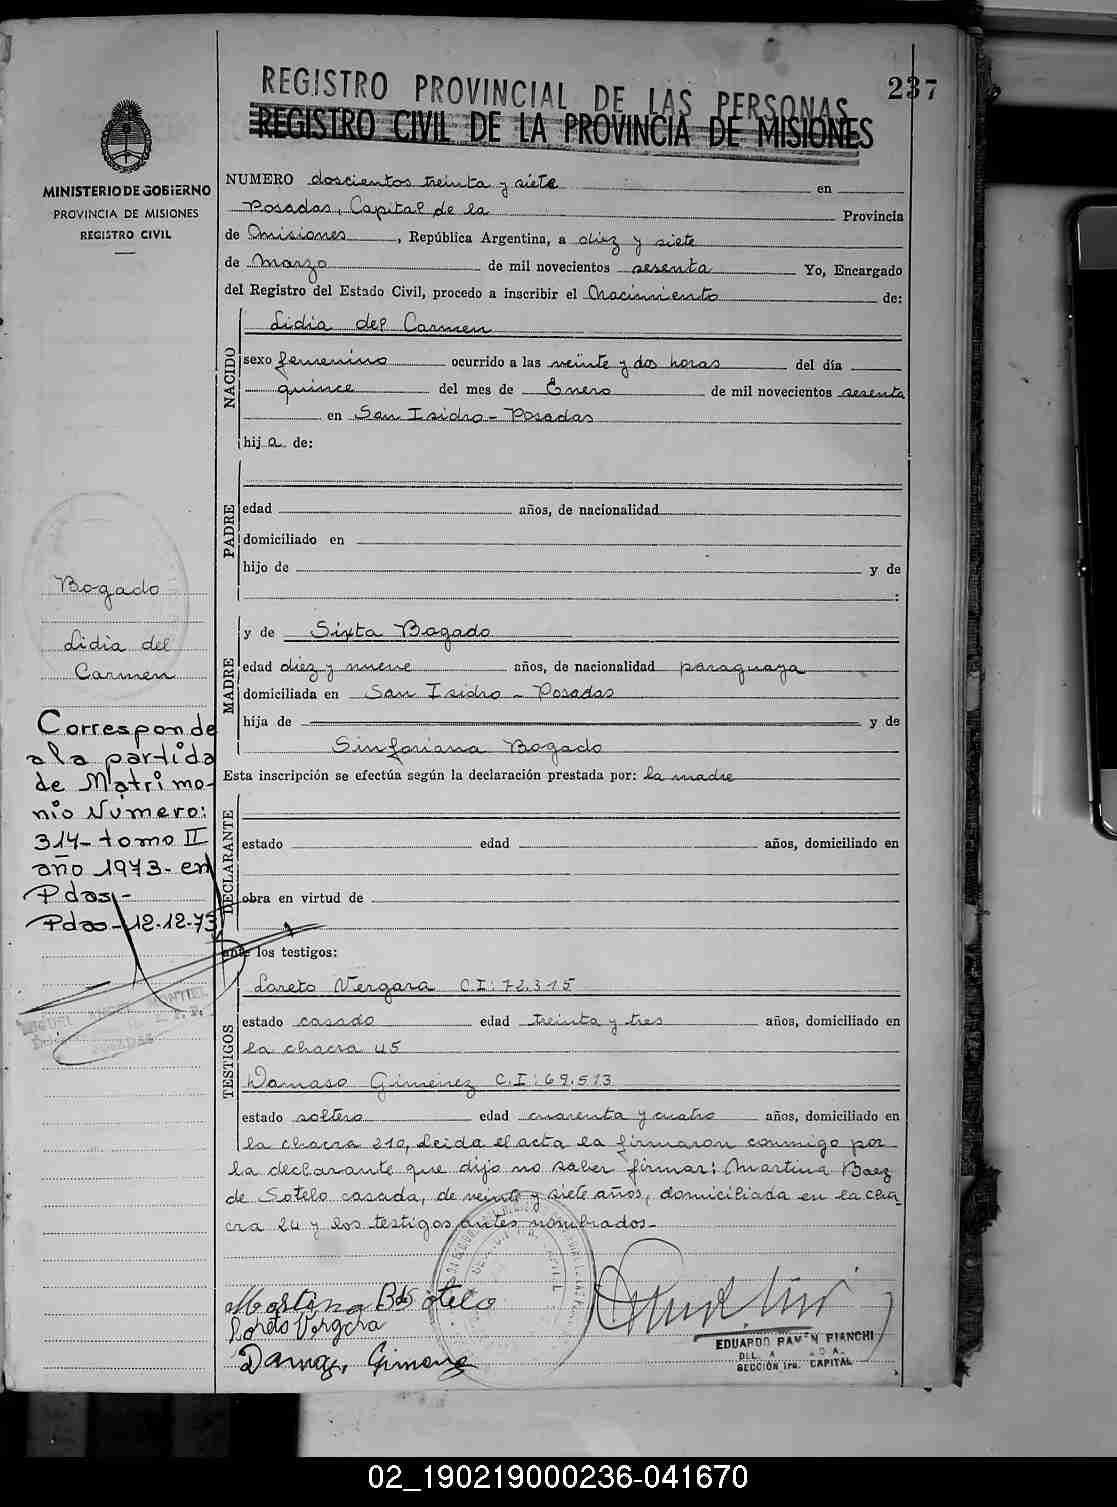 REGISTRO PROVINCIAL DE LAS PERSONAS
237
REGISTRO CIVIL DE LA PROVINCIA DE MISIONES
MINISTERIO DE GOBIERNO
PROVINCIA DE MISIONES
REGISTRO CIVIL
NUMERO doscientos treinta y siete en
Posadas, Capital de la Provincia
de Misiones, República Argentina, a diez y siete
de Marzo de mil novecientos sesenta Yo, Encargado
del Registro del Estado Civil, procedo a inscribir el Nacimiento de:
NACIDO
Lidia del Carmen
sexo femenino ocurrido a las veinte y dos horas del día
quince del mes de Enero de mil novecientos sesenta
en San Isidro - Posadas
hija de:
PADRE
edad años, de nacionalidad
domiciliado en
hijo de y de
:
MADRE
y de Sixta Bogado
edad diez y nueve años, de nacionalidad paraguaya
domiciliada en San Isidro - Posadas
hija de y de
Sinforiana Bogado
Esta inscripción se efectúa según la declaración prestada por: la madre
DECLARANTE
estado edad años, domiciliado en
obra en virtud de
ante los testigos:
TESTIGOS
Loreto Vergara C.I: 72.315
estado casado edad treinta y tres años, domiciliado en
la chacra 45
Damaso Gimenez C.I: 69.513
estado soltero edad cuarenta y cuatro años, domiciliado en
la chacra 210, Leida el acta la firmaron conmigo por
la declarante que dijo no saber firmar: Martina Baez
de Sotelo casada, de veinte y siete años, domiciliada en la cha
cra 24 y los testigos antes nombrados-
Bogado
Lidia del
Carmen
Corresponde
a la partida
de Matrimo-
nio Número:
314- tomo II
año 1973- en
Pdas,-
Pdas- 12-12-73
Martina B de Sotelo
Loreto Vergara
Damaso Gimenez
EDUARDO RAMÓN BIANCHI
SECCIÓN 1ra. CAPITAL
02_190219000236-041670